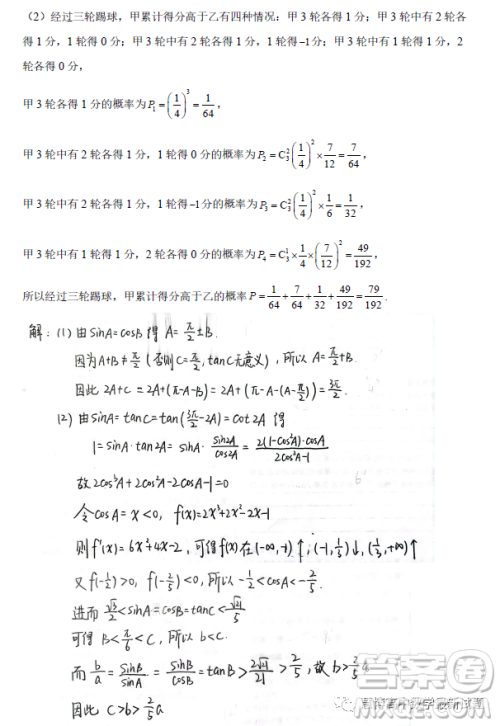 （2）经过三轮踢球，甲累计得分高于乙有四种情况：甲 3 轮各得 1 分；甲 3 轮中有 2 轮各
得 1 分，1 轮得 0 分；甲 3 轮中有 2 轮各得 1 分，1 轮得 −1 分；甲 3 轮中有 1 轮得 1 分，2
轮各得 0 分，
甲 3 轮各得 1 分的概率为 P₁ = (1/4)³ = 1/64，
甲 3 轮中有 2 轮各得 1 分，1 轮得 0 分的概率为 P₂ = C₃²(1/4)² × 7/12 = 7/64，
甲 3 轮中有 2 轮各得 1 分，1 轮得 −1 分的概率为 P₃ = C₃²(1/4)² × 1/6 = 1/32，
甲 3 轮中有 1 轮得 1 分，2 轮各得 0 分的概率为 P₄ = C₃¹ × 1/4 × (7/12)² = 49/192，
所以经过三轮踢球，甲累计得分高于乙的概率 P = 1/64 + 7/64 + 1/32 + 49/192 = 79/192.
解：(1) 由 sinA = cosB 得 A = π/2 ± B.
因为 A+B ≠ π/2 (否则 C = π/2, tanC 无意义), 所以 A = π/2 + B.
因此 2A+C = 2A+(π-A-B) = 2A+(π-A-(A-π/2)) = 3π/2.
(2) 由 sinA = tanC = tan(3π/2 - 2A) = cot2A 得
1 = sinA·tan2A = sinA·sin2A/cos2A = 2(1-cos²A)·cosA/(2cos²A-1)
故 2cos³A + 2cos²A - 2cosA - 1 = 0
令 cosA = x < 0, f(x) = 2x³+2x²-2x-1
则 f'(x) = 6x²+4x-2, 可得 f(x) 在 (-∞,-1) ↑; (-1, 1/3) ↓, (1/3, +∞) ↑
又 f(-1/2) > 0, f(-2/5) < 0, 所以 -1/2 < cosA < -2/5.
进而 √3/2 < sinA = cosB = tanC < √21/5
可得 B < π/6 < C, 所以 b < c.
而 b/a = sinB/sinA = sinB/cosB = tanB > 2√21/21 > 2/5, 故 b > 2/5 a
因此 c > b > 2/5 a
答案圈